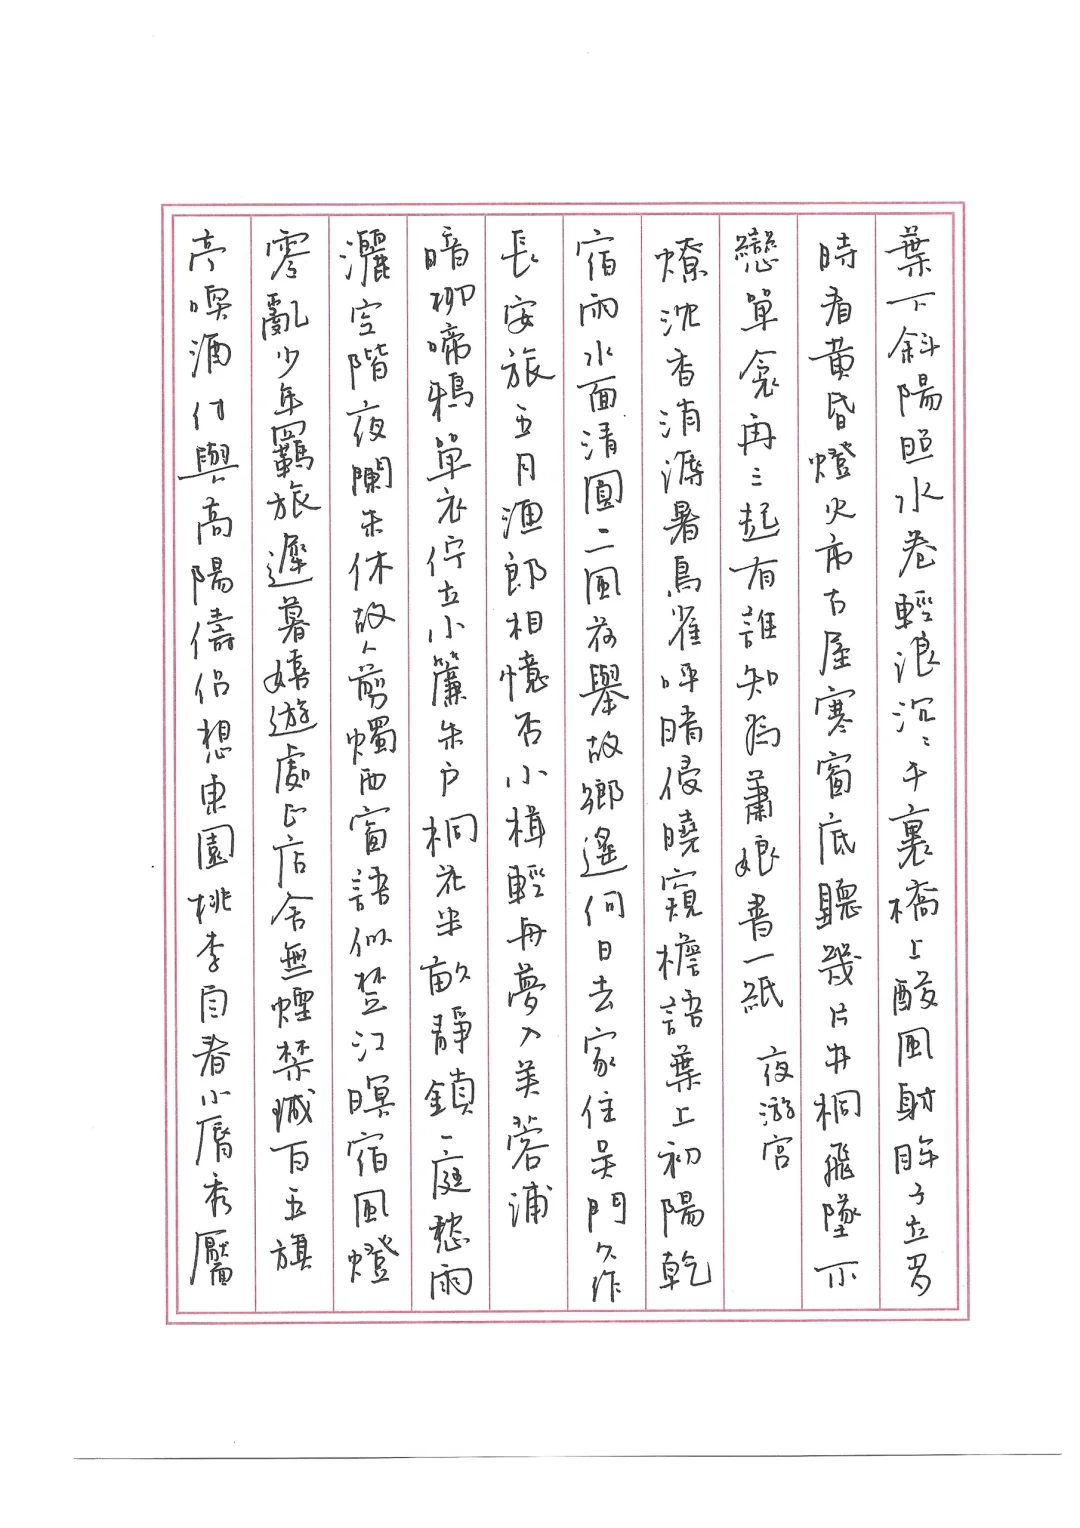 葉下斜陽照水卷輕浪沉〻千裏橋上酸風射眸子立多
時看黄昏燈火市古屋寒窗底聽幾片井桐飛墜不
戀單衾再三起有誰知為蕭娘書一紙 夜游宮
燎沈香消溽暑鳥雀呼晴侵曉窺檐語葉上初陽乾
宿雨水面清圓一一風荷舉故鄉遙何日去家住吳門久作
長安旅五月漁郎相憶否小楫輕舟夢入芙蓉浦
暗柳啼鴉單衣佇立小簾朱户桐花半畝靜鎖一庭愁雨
灑空階夜闌未休故人剪燭西窗語似楚江暝宿風燈
零亂少年羈旅遲暮嬉遊處正店舍無煙禁城百五旗
亭喚酒付與高陽儔侶想東園桃李自春小脣秀靨